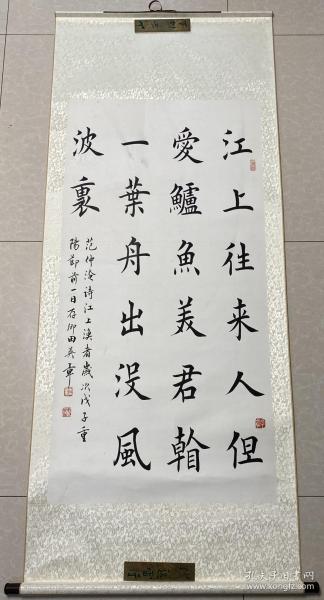 江上往来人但
愛鱸魚美君看
一葉舟出没風
波裏
范仲淹詩江上漁者歲次戊子重
陽節前一日存卿田英章
孔夫子旧书网